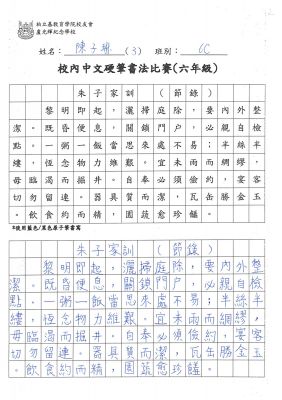 柏立基教育學院校友會
盧光輝紀念學校
姓名：陳子 (3) 班別：6C
校內中文硬筆書法比賽(六年級)
朱子家訓（節錄）
黎明即起，灑掃庭除，要內外整
潔。既昏便息，關鎖門戶，必親自檢
點。一粥一飯當思來處不易；半絲半
縷，恆念物力維艱。宜未雨而綢繆，
毋臨渴而掘井。自奉必須儉約，宴客
切勿留連。器具質而潔，瓦缶勝金玉
。飲食約而精，園蔬愈珍饈。
*使用藍色/黑色原子筆書寫
朱子家訓（節錄）
黎明即起，灑掃庭除，要內外整
潔。既昏便息，關鎖門戶，必親自檢
點。一粥一飯當思來處不易；半絲半
縷，恆念物力維艱。宜未雨而綢繆，
毋臨渴而掘井。自奉必須儉約，宴客
切勿留連。器具質而潔，瓦缶勝金玉
。飲食約而精，園蔬愈珍饈。